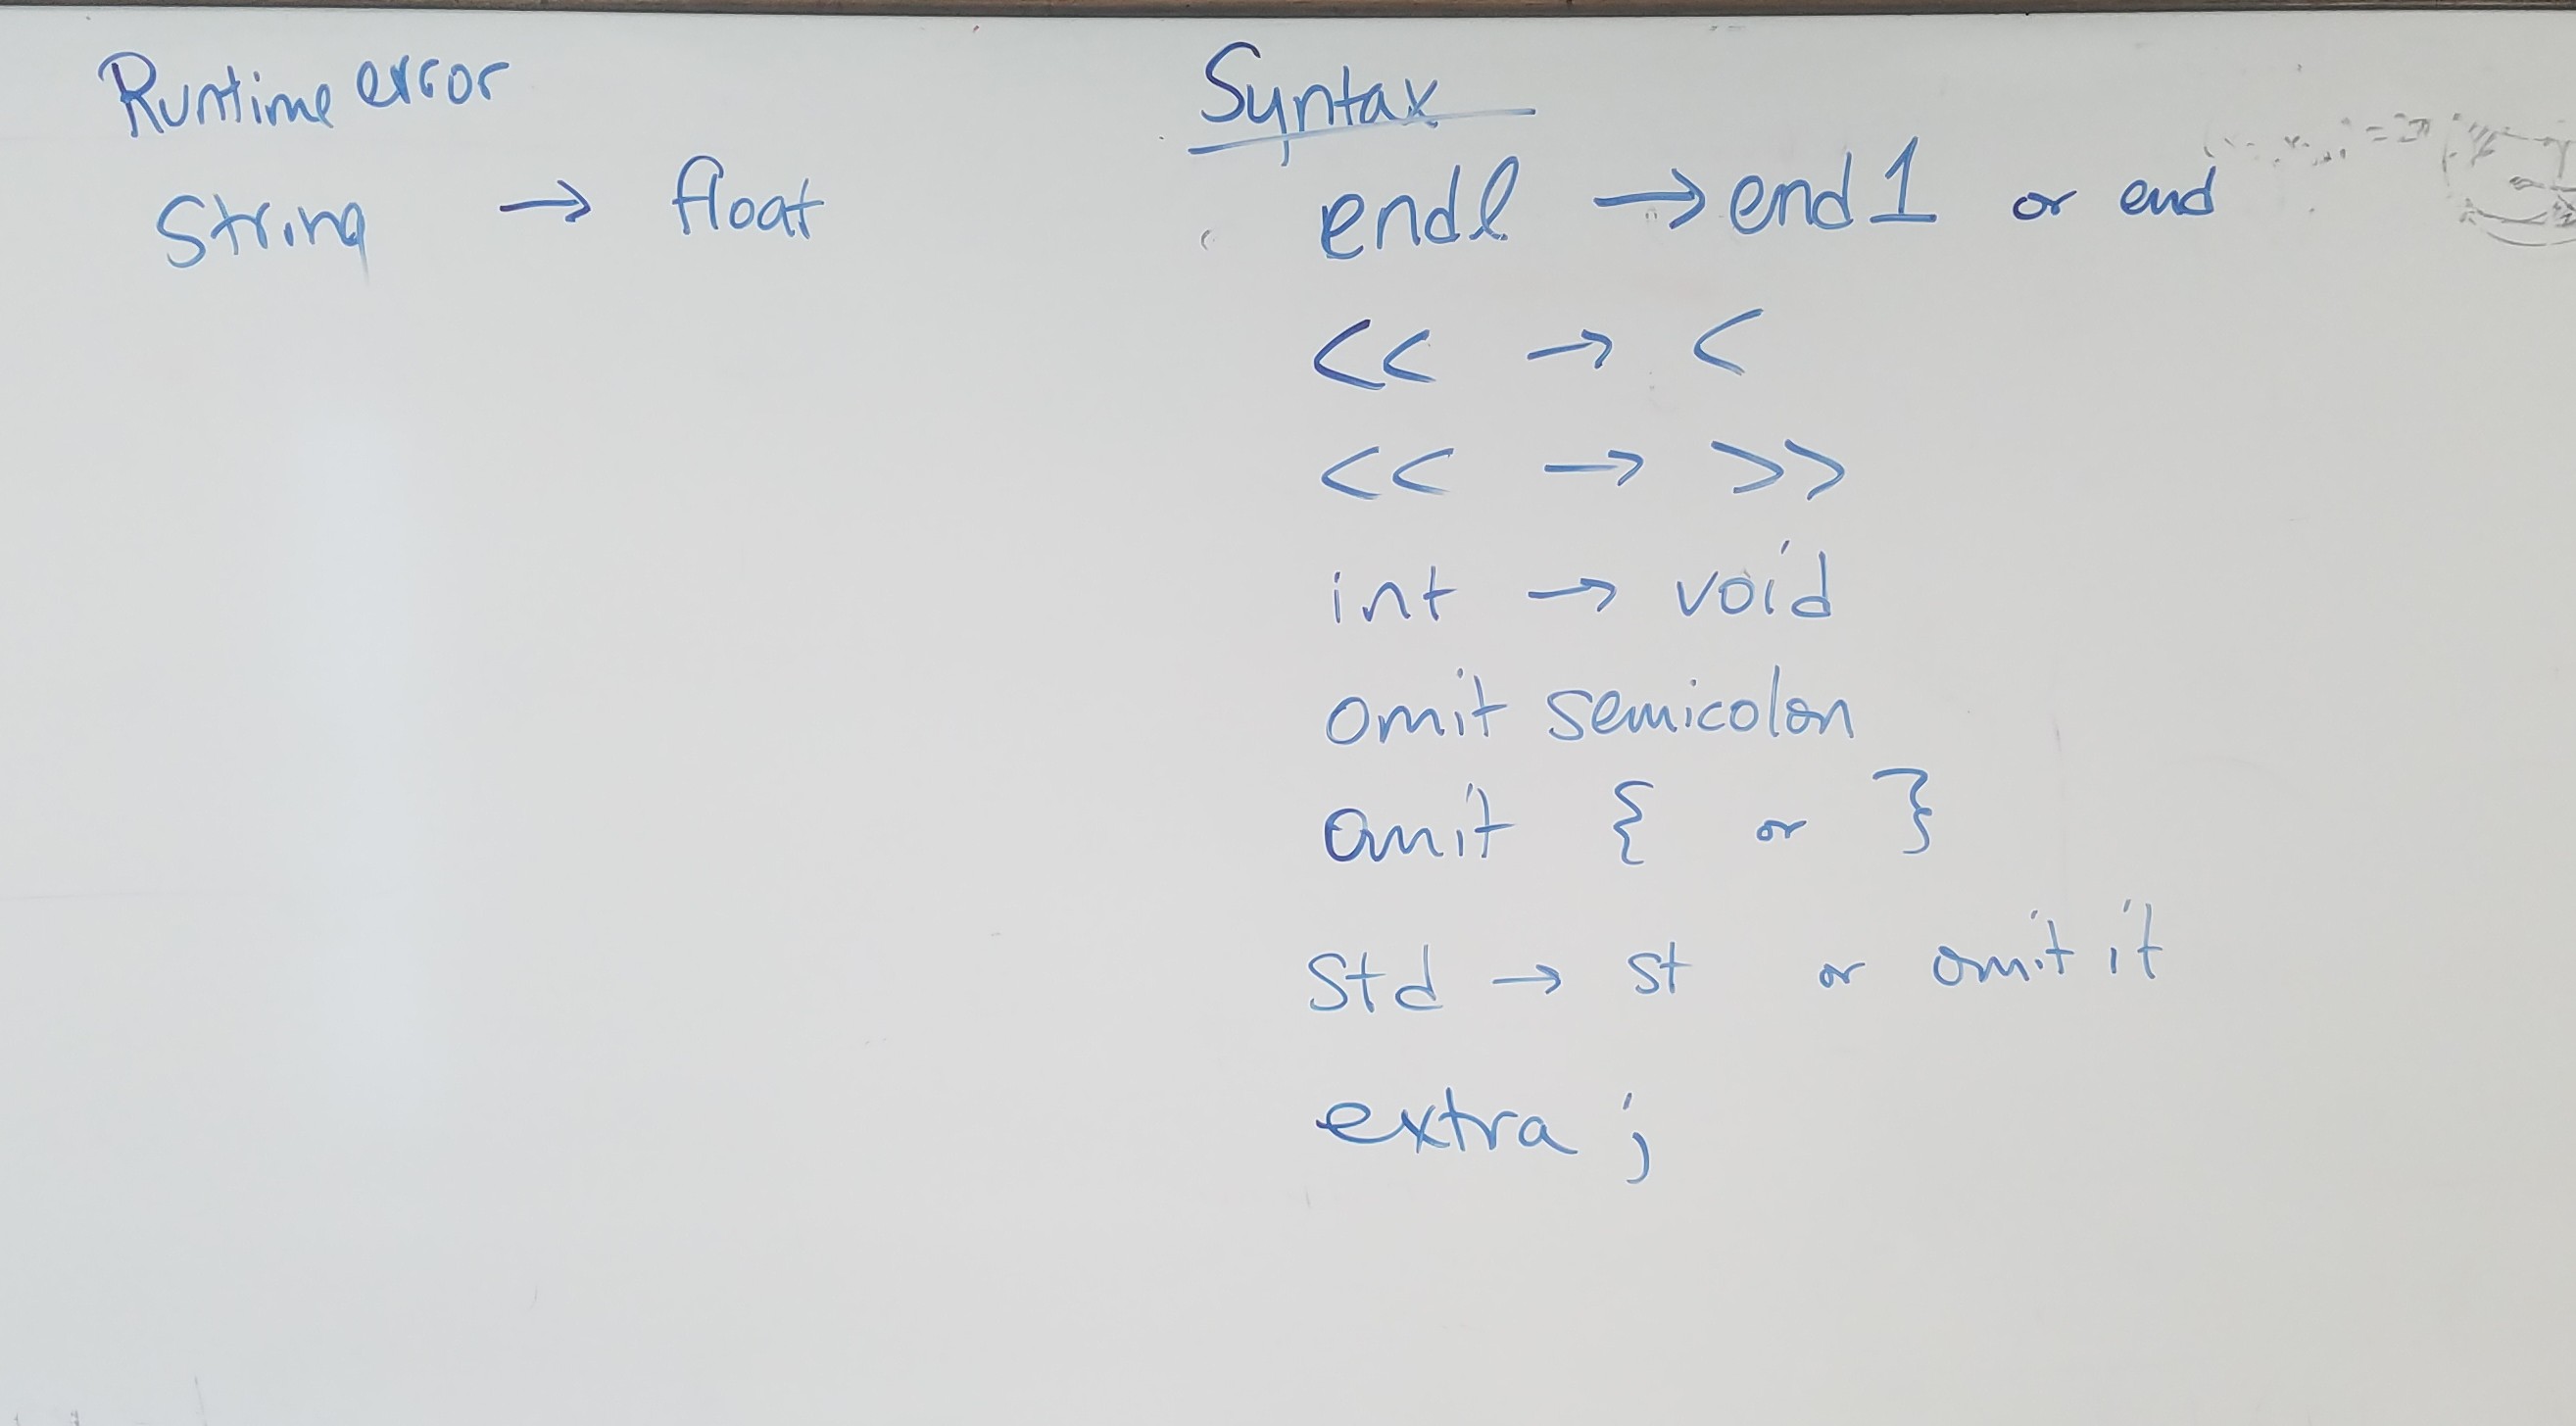 Runtime error
String → float
Syntax
endl → end1 or end
<< → <
<< → >>
int → void
omit semicolon
omit { or }
Std → st or omit it
extra ;